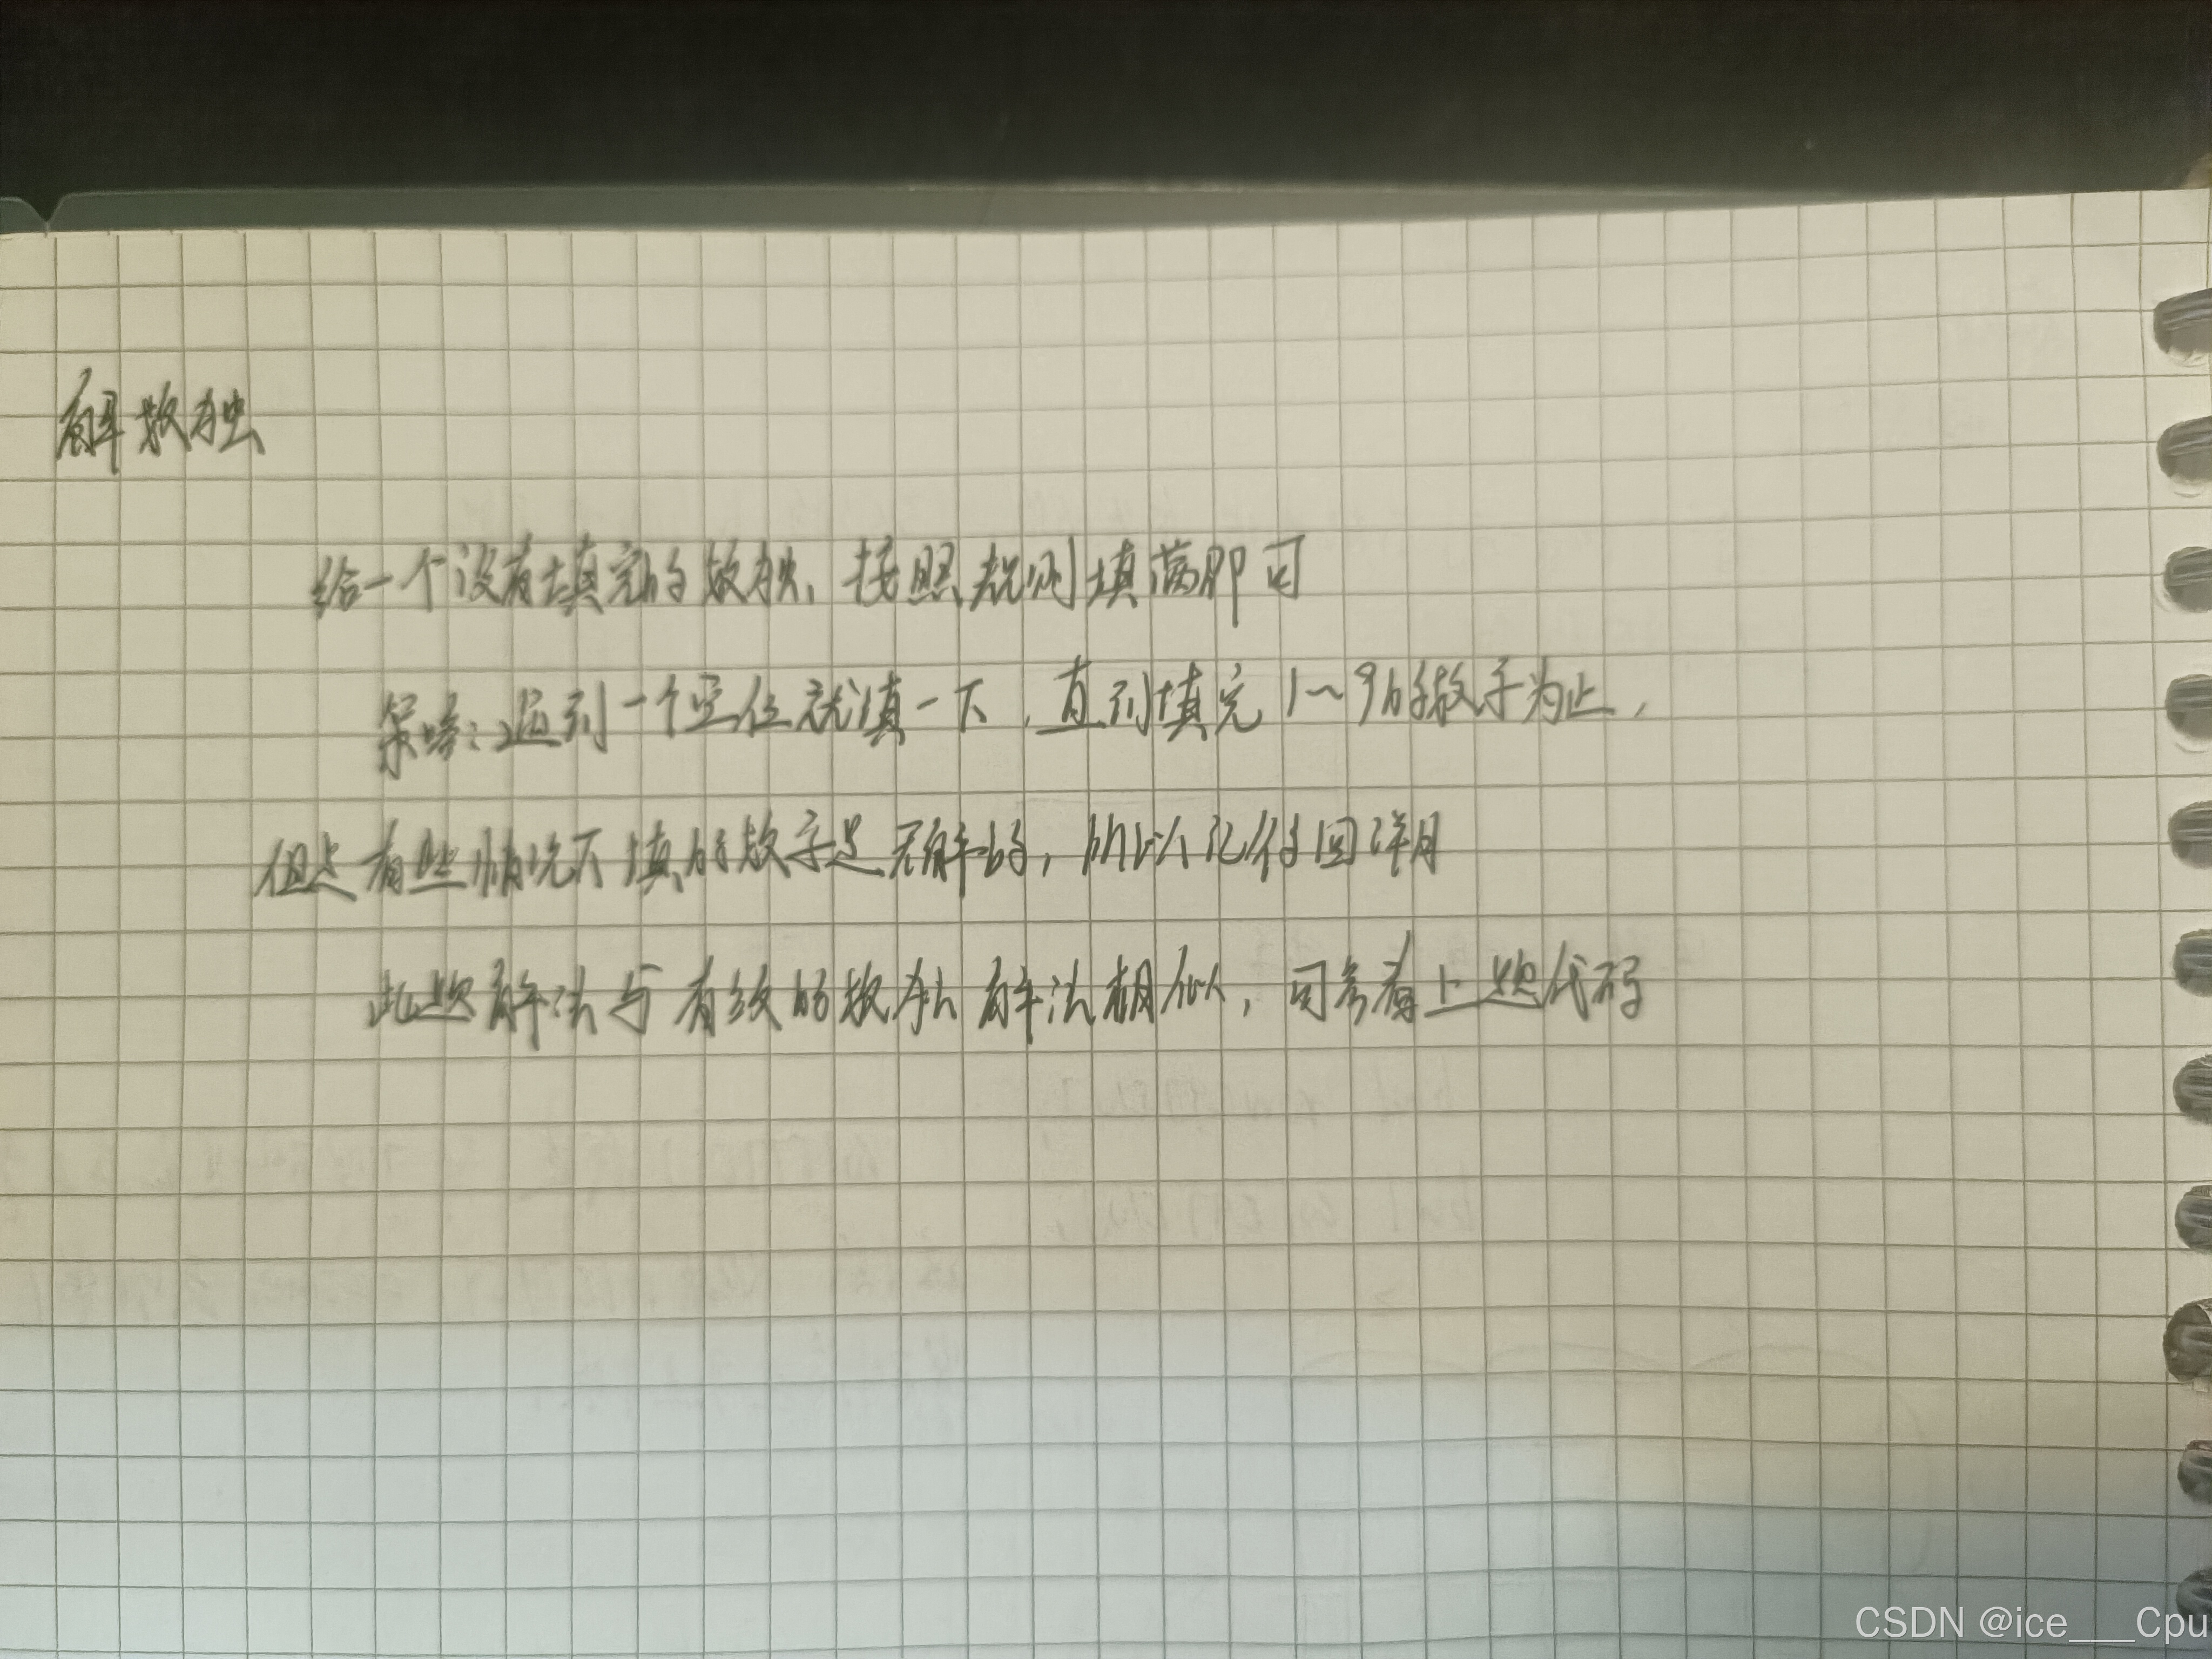 解数独
给一个没有填完的数独、按照规则填满即可
策略：遇到一个空位就填一下，直到填完1～9的数字为止，
但是有些情况下填的数字是无解的，所以记得回溯
此题解法与有效的数独解法相似，可参考上题代码
CSDN @ice___Cpu